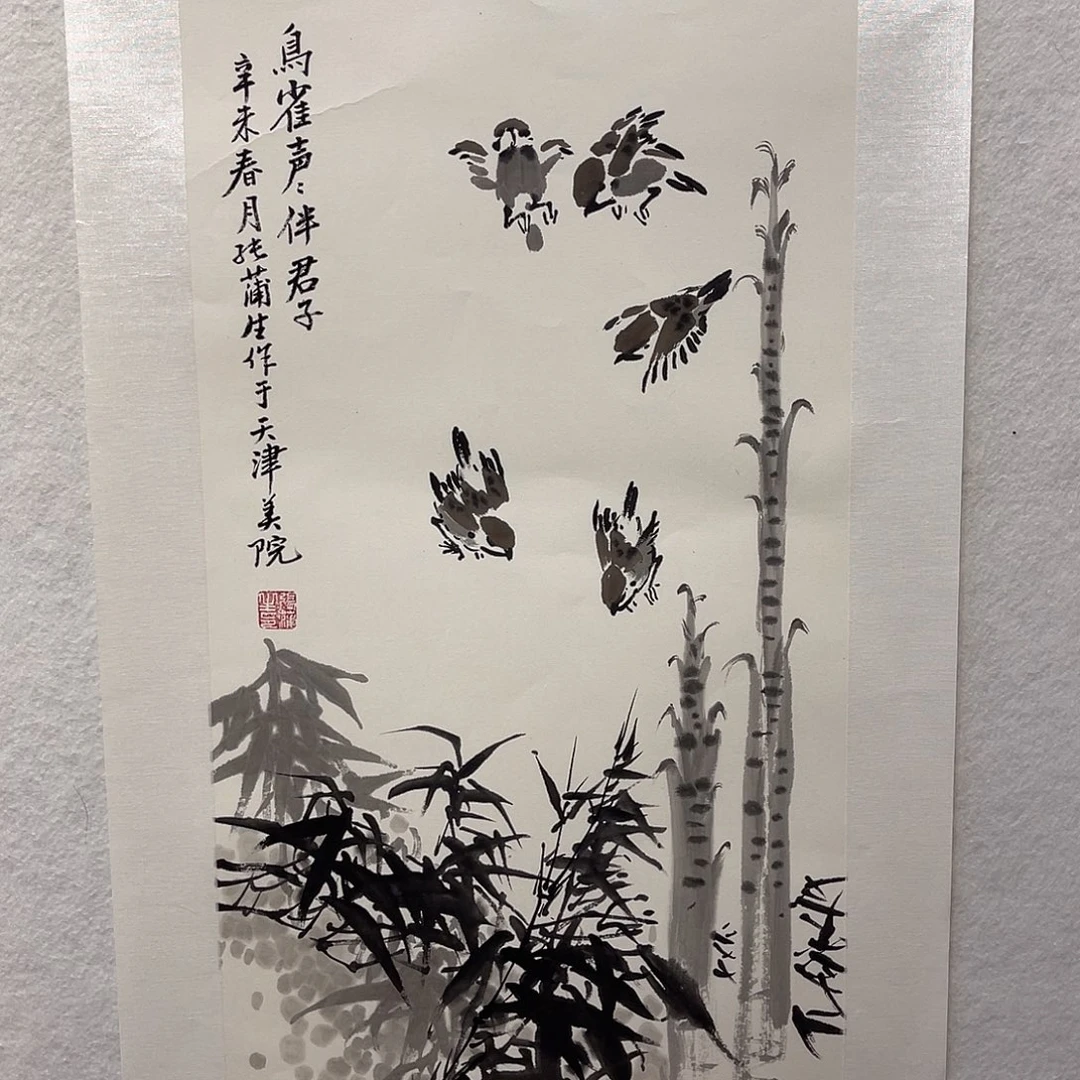 鳥雀声々伴君子
辛未春月张蒲生作于天津美院